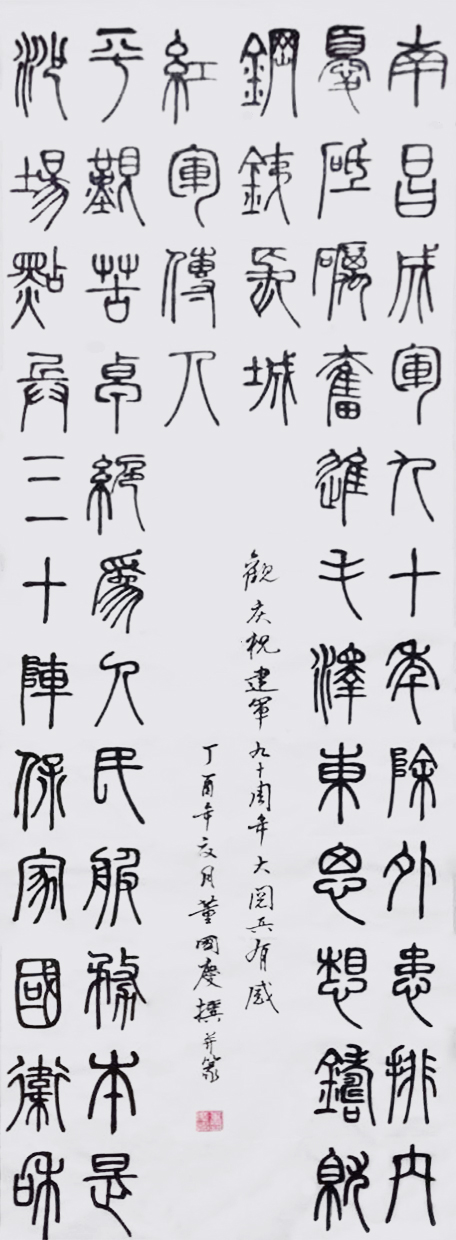 南昌成軍九十年除外患排内
憂砥礪奮進毛澤東思想鑄就
鋼銕長城
沙場點兵三十陣保家國衛和
平艱苦卓絕為人民服務本是
紅軍傳人
觀庆祝建軍九十周年大閲兵有感
丁酉年夏月董國慶撰并篆